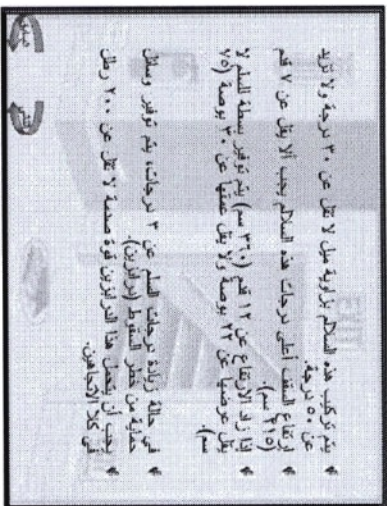 يتم تركيب هذه السلالم بزاوية ميل لا تقل عن ٣٠ درجة ولا تزيد
عن ٥٠ درجة.
ارتفاع السقف أعلى درجات هذه السلالم يجب ألا يقل عن ٧ قدم
(٢١٥ سم).
إذا زاد الارتفاع عن ١٢ قدم (٣٦٠ سم) يتم توفير بسطة للسلم لا
يقل عرضها عن ٢٢ بوصة ولا يقل عمقها عن ٣٠ بوصة (٧٥
سم).
في حالة زيادة درجات السلم عن ٣ درجات، يتم توفير وسائل
حماية من خطر السقوط (درابزين).
يجب أن يتحمل هذا الدرابزين قوة صدمة لا تقل عن ٢٠٠ رطل
في كلا الاتجاهين.
EXIT